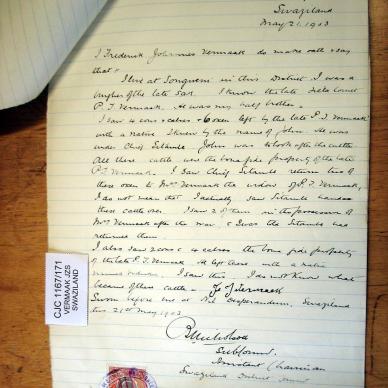 Swaziland
May 21. 1903
I Frederick Johannes Vermaak do make oath & say
that :-
I live at Songuem in this District I was a
burgher of the late SAR. I know the late
P. J. Vermaak. He was my half brother.
I saw 4 cows & calves & 6 oxen left by the late P. J. Vermaak
with a native I knew by the name of John. He was
under Chief Silambe. John was to look after the cattle.
All these cattle were the bona fide property of the late
P. J. Vermaak. I saw Chief Silambe return two of
these oxen to Mrs Vermaak the widow of P. J. Vermaak,
I do not mean that I actually saw Silambe hand
these cattle over. I saw 2 of them in the possession of
Mrs Vermaak after the war & was the Silambe has
returned them.
I also saw 2 cows & 2 calves the bona fide property
of the late P. J. Vermaak. He left these with a native
named . I saw this. I do not know what
became of these cattle. F J Vermaak
Sworn before me at , Swaziland
this 21st May 1903
B Nicholson
Assistant Chairman
Swaziland District
CJC 1167/171
VERMAAK JZS
SWAZILAND